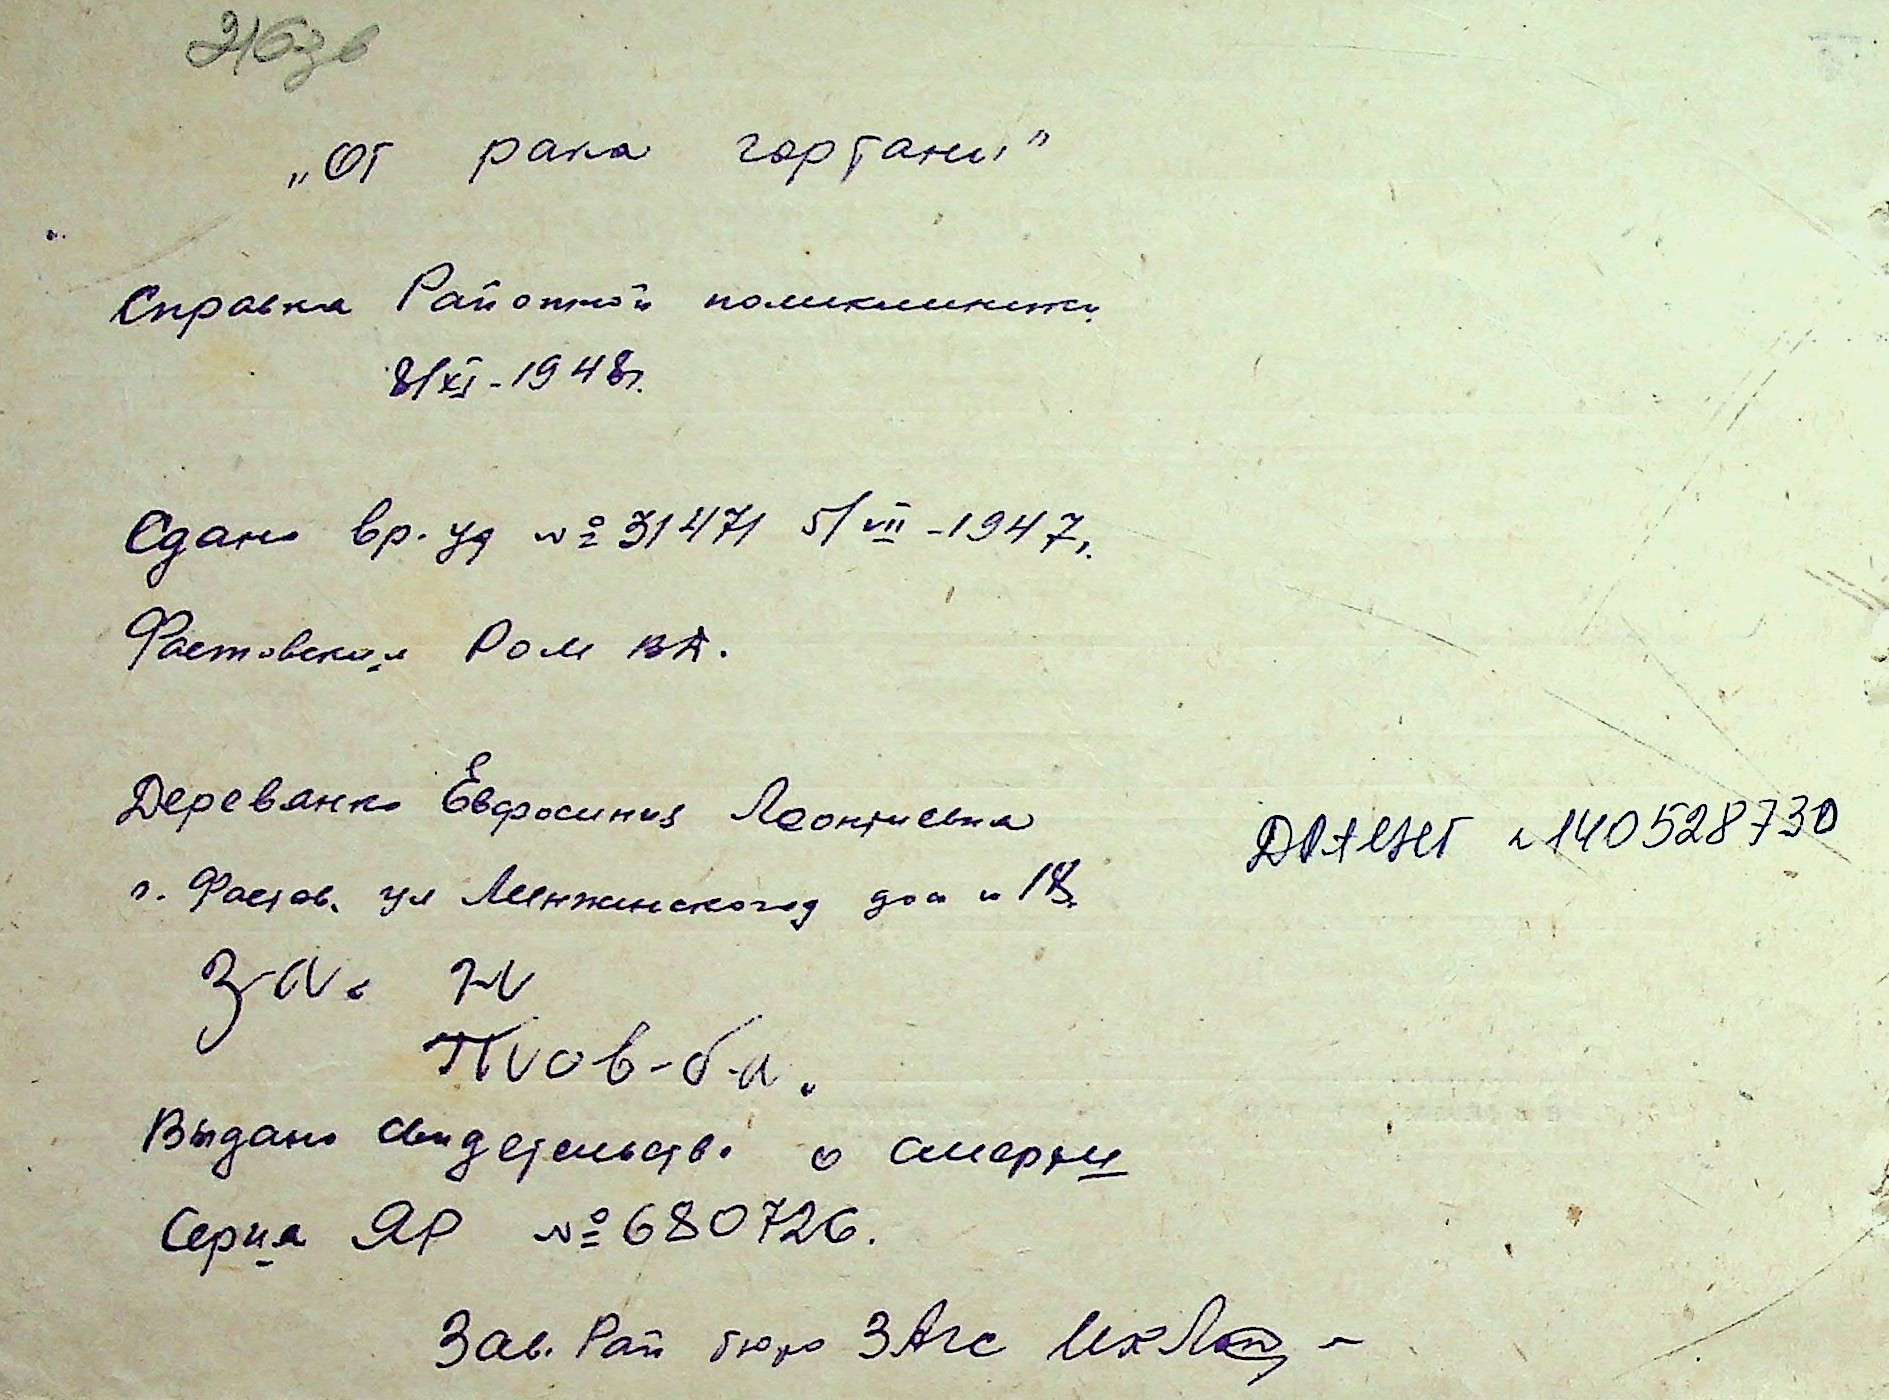 „От рака гортани"
Справка Районной поликлиники
8/XI-1948г.
Сдано вр. уд №31471 5/VII-1947г.
Фастовским Ром ВД.
Деревянко Евфросиния Леонтиевна
г. Фастов. ул Менжинского дом н 18.
Выдано свидетельство о смерти
Серия ЯР №680726.
Зав. Рай бюро ЗАГС
140528730